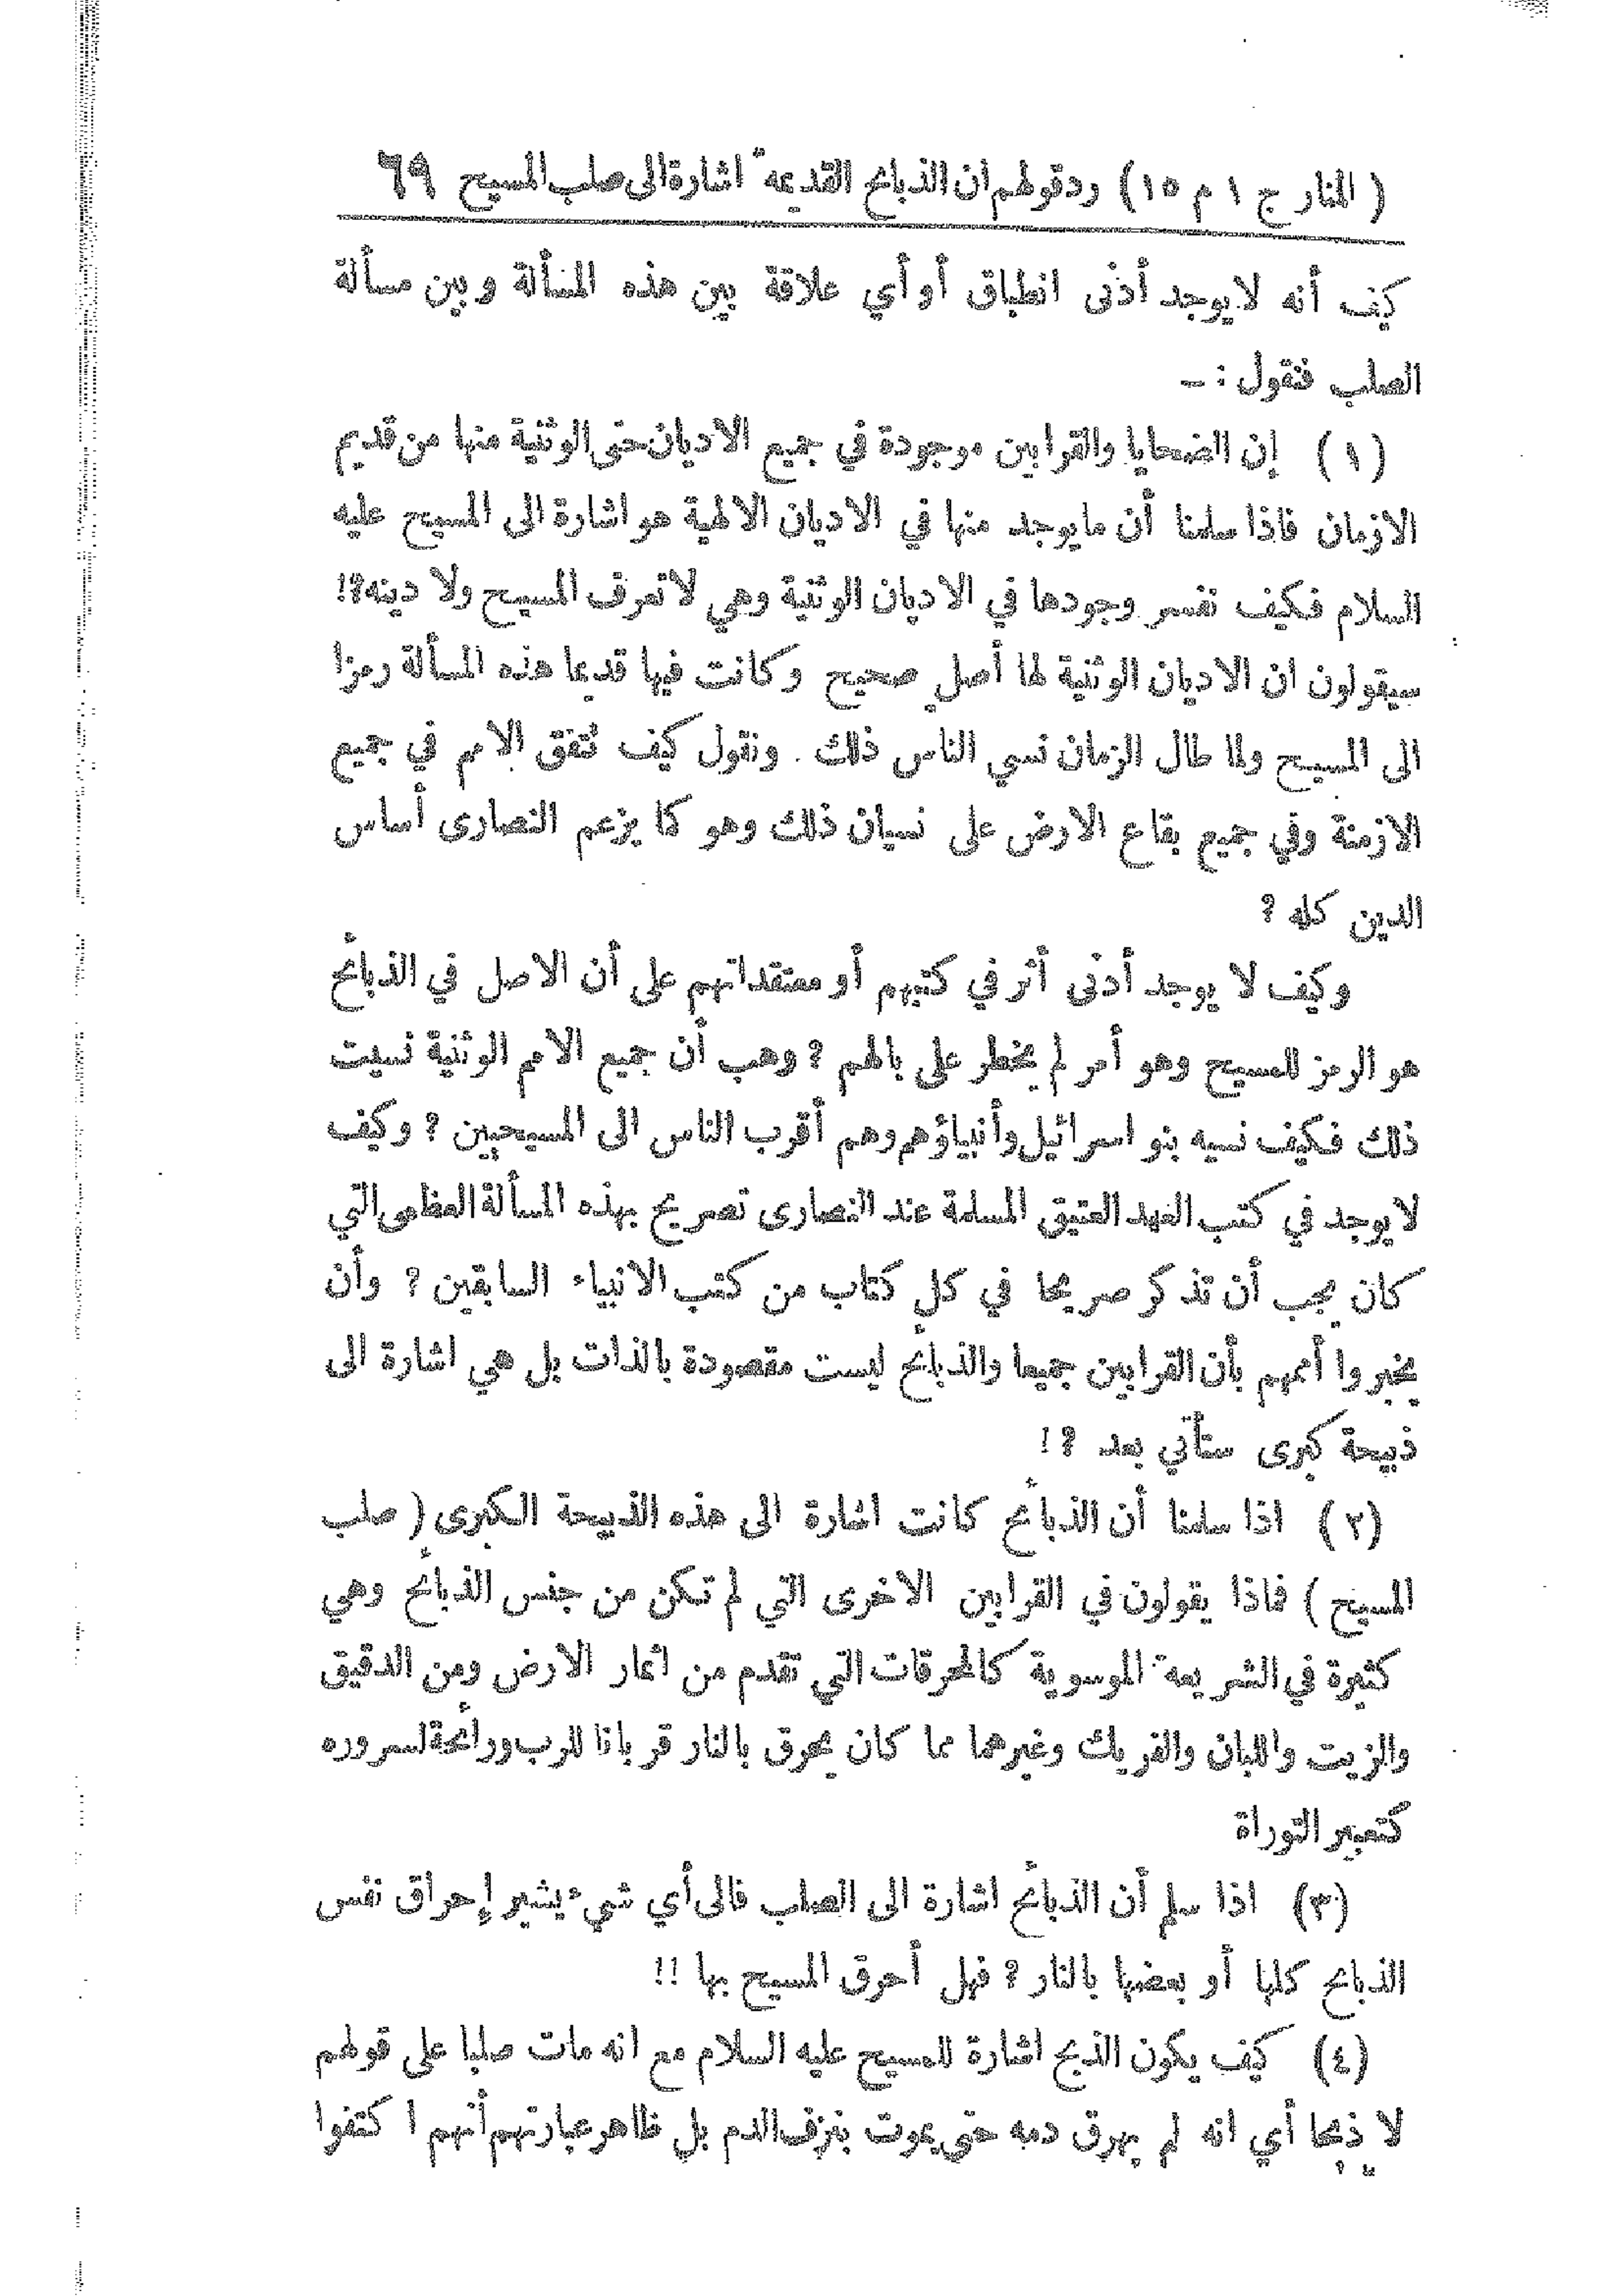 ( المنار ج ١ م ١٥ ) رد قولهم ان الذبائح القديمة اشارة الى صلب المسيح ٦٩
كيف أنه لا يوجد أدنى انطباق أو أي علاقة بين هذه المسألة وبين مسألة
الصلب فنقول : –
( ١ ) إن الضحايا والقرابين موجودة في جميع الاديان حتى الوثنية منها من قديم
الازمان فاذا سلمنا أن ما يوجد منها في الاديان الالهية هو اشارة الى المسيح عليه
السلام فكيف نفسر وجودها في الاديان الوثنية وهي لا تعرف المسيح ولا دينه ?!
سيقولون ان الاديان الوثنية لها أصل صحيح وكانت فيها قديما هذه المسألة رمزا
الى المسيح ولما طال الزمان نسي الناس ذلك . ونقول كيف تتفق الامم في جميع
الازمنة وفي جميع بقاع الارض على نسيان ذلك وهو كما يزعم النصارى أساس
الدين كله ?
وكيف لا يوجد أدنى أثر في كتبهم أو معتقداتهم على أن الاصل في الذبائح
هو الرمز للمسيح وهو أمر لم يخطر على بالهم ? وهب أن جميع الامم الوثنية نسيت
ذلك فكيف نسيه بنو اسرائيل وأنبياؤهم وهم أقرب الناس الى المسيحيين ? وكيف
لا يوجد في كتب العهد العتيق المسلمة عند النصارى تصريح بهذه المسألة العظمى التي
كان يجب أن تذكر صريحا في كل كتاب من كتب الانبياء السابقين ? وأن
يخبروا أممهم بأن القرابين جميعا والذبائح ليست مقصودة بالذات بل هي اشارة الى
ذبيحة كبرى ستأتي بعد ?!
( ٢ ) اذا سلمنا أن الذبائح كانت اشارة الى هذه الذبيحة الكبرى ( صلب
المسيح ) فماذا يقولون في القرابين الاخرى التي لم تكن من جنس الذبائح وهي
كثيرة في الشريعة الموسوية كالمحرقات التي تقدم من اثمار الارض ومن الدقيق
والزيت واللبان والفريك وغيرهما مما كان يحرق بالنار قربانا للرب ورائحة لسروره
كتعبير التوراة
(٣) اذا سلم أن الذبائح اشارة الى الصلب فالى أي شيء يشير إحراق نفس
الذبائح كلها أو بعضها بالنار ? فهل أحرق المسيح بها !!
(٤) كيف يكون الذبح اشارة للمسيح عليه السلام مع انه مات صلبا على قولهم
لا ذبحا أي انه لم يهرق دمه حتى يموت بنزف الدم بل ظاهر عبارتهم أنهم ا كتفوا